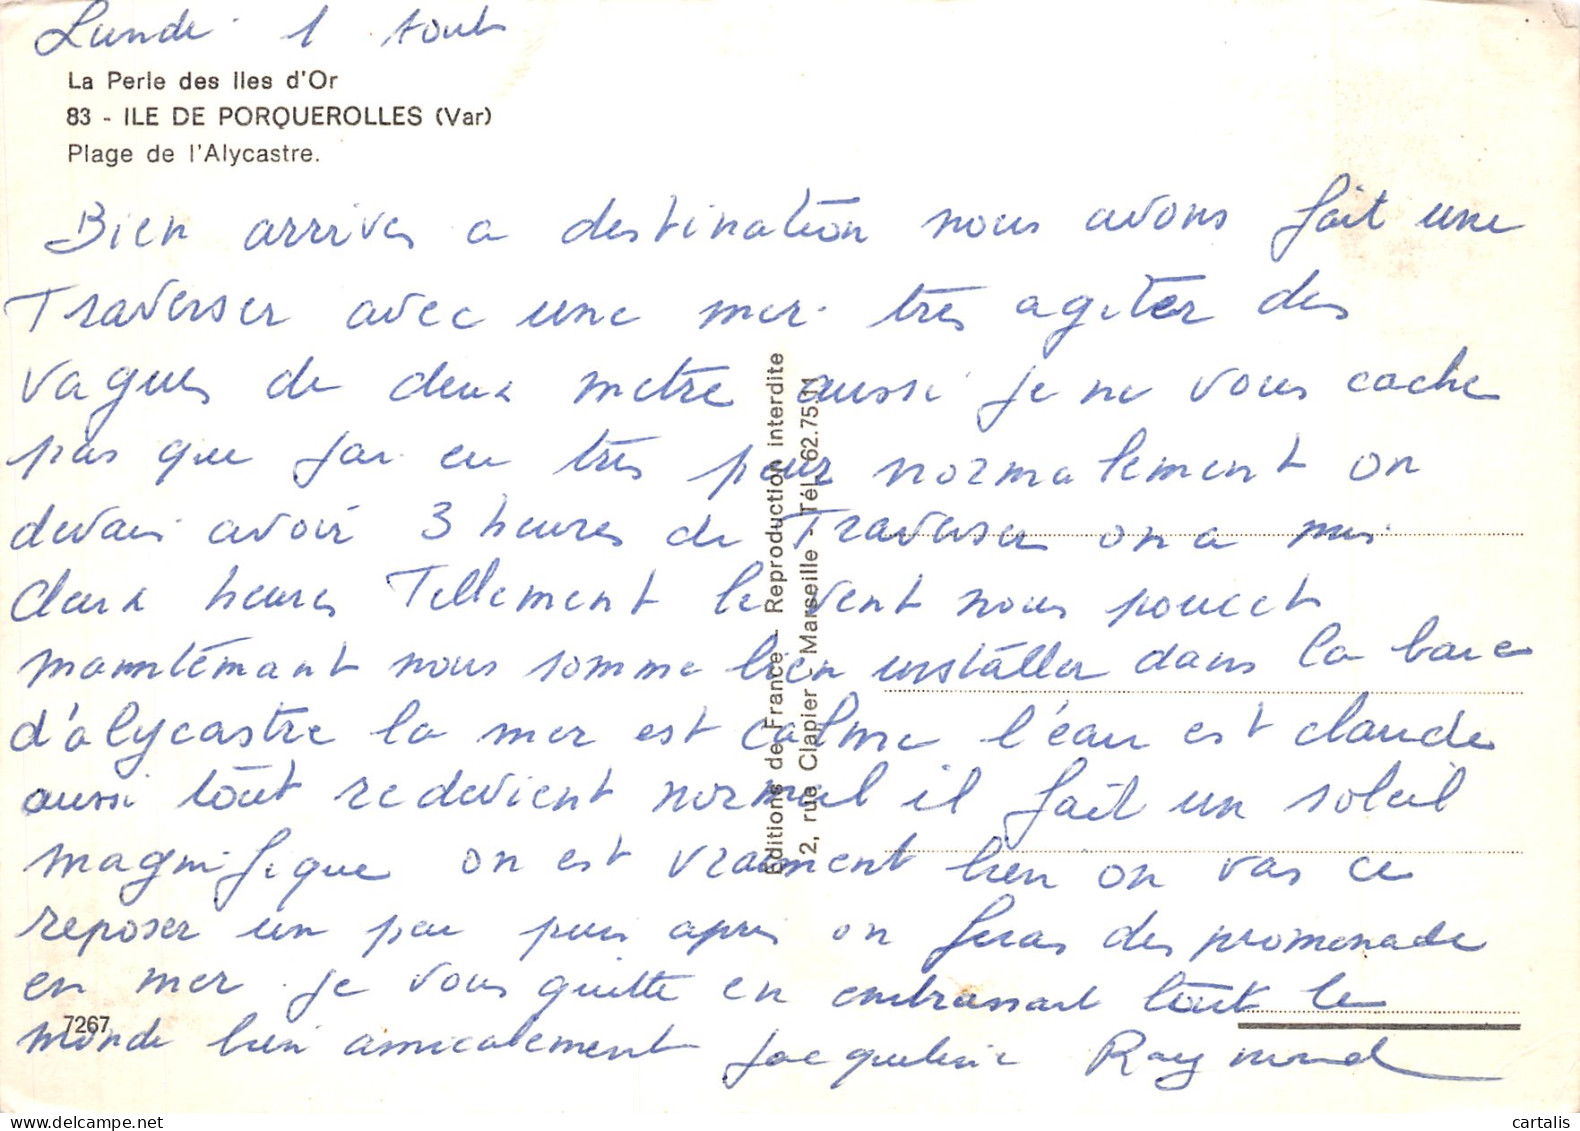 Lundi 1 Aout
La Perle des Iles d'Or
83 - ILE DE PORQUEROLLES (Var)
Plage de l'Alycastre.
Bien arrives a destination nous avons fait une
Traverser avec une mer tres agiter des
vagues de deux metre aussi je ne vous cache
pas que jai eu très peur normalement on
devais avoir 3 heures de Traverser on a mis
deux heures Tellement le vent nous poucet
mainntemant nous somme bien installer dans la baie
d'alycastre la mer est calme l'eau est claude
aussi tout redevient normal il fait un soleil
magnifique on est vraiment bien on vas ce
reposer un peu puis apres on feras des promenade
en mer je vous quitte en embrassant tout le
monde bien amicalement Jacqueline Raymond
7267
Editions de France - Reproduction interdite
2, rue Clapier Marseille - Tél. 62.75.11
cartalis